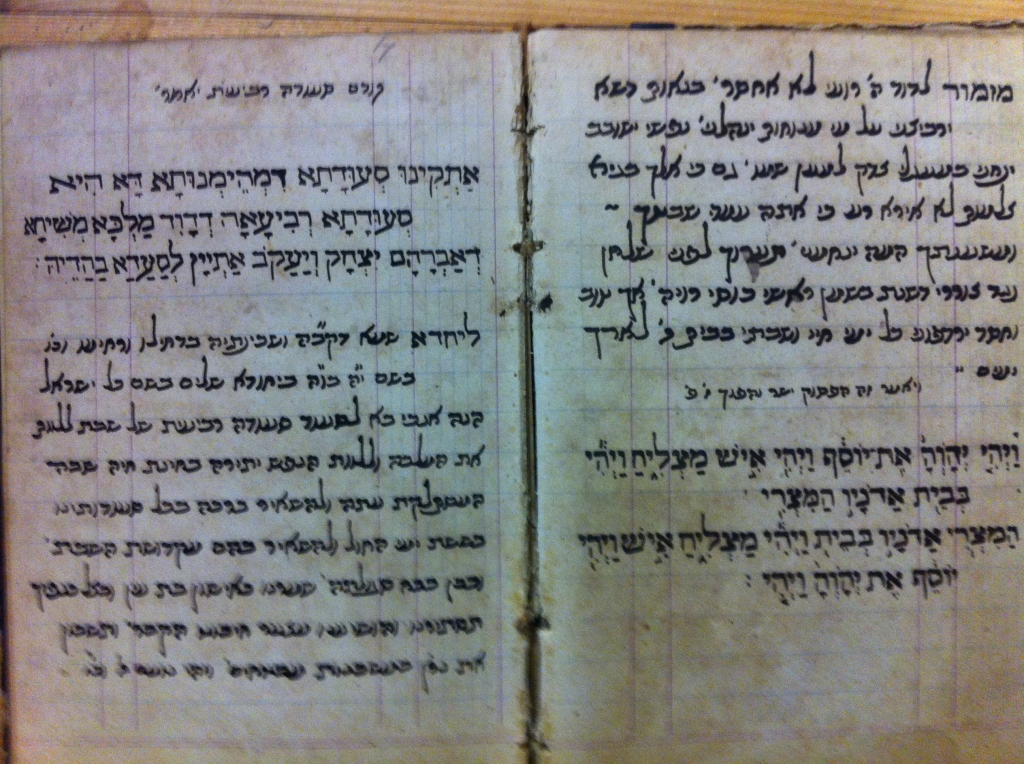 מזמור לדוד ה' רועי לא אחסר' בנאות דשא
ירביצני על מי מנוחות ינהלני' נפשי ישובב
ינחני במעגלי צדק למען שמו' גם כי אלך בגיא
צלמות לא אירא רע כי אתה עמדי שבטך
ומשענתך המה ינחמני' תערוך לפני שלחן
נגד צוררי דשנת בשמן ראשי כוסי רויה' אך טוב
וחסד ירדפוני כל ימי חיי ושבתי בבית ה' לאורך
ימים
ויאמר זה הפסוק ישר והפוך ג"פ
וַיְהִי יְהֹוָה אֶת־יוֹסֵף וַיְהִי אִישׁ מַצְלִיחַ וַיְהִי
בְּבֵית אֲדֹנָיו הַמִּצְרִי
הַמִּצְרִי אֲדֹנָיו בְּבֵית וַיְהִי מַצְלִיחַ אִישׁ וַיְהִי
יוֹסֵף אֶת יְהֹוָה וַיְהִי :
קודם סעודה רביעית יאמר'
אַתְקִינוּ סְעוּדָתָא דִמְהֵימְנוּתָא דָּא הִיא
סְעוּדָתָא רְבִיעָאָה דְדָוִד מַלְכָּא מְשִׁיחָא
דְאַבְרָהָם יִצְחָק וְיַעֲקֹב אַתְיָין לְסַעֲדָא בַהֲדֵיהּ :
ליחדא שמא דקב"ה ושכינתיה בדחילו ורחימו וכו'
בשם י"ה בו"ה ביחודא שלים בשם כל ישראל
הנה אנכי בא לסעוד סעודה רביעית של שבת ללוות
את המלכה וללוות הנפש יתירה בחינת חיה שבה
המסתלקת עתה ולהשאיר ברכה בכל סעודותינו
בששת ימי החול ולהשאיר בהם מקדושת השבת